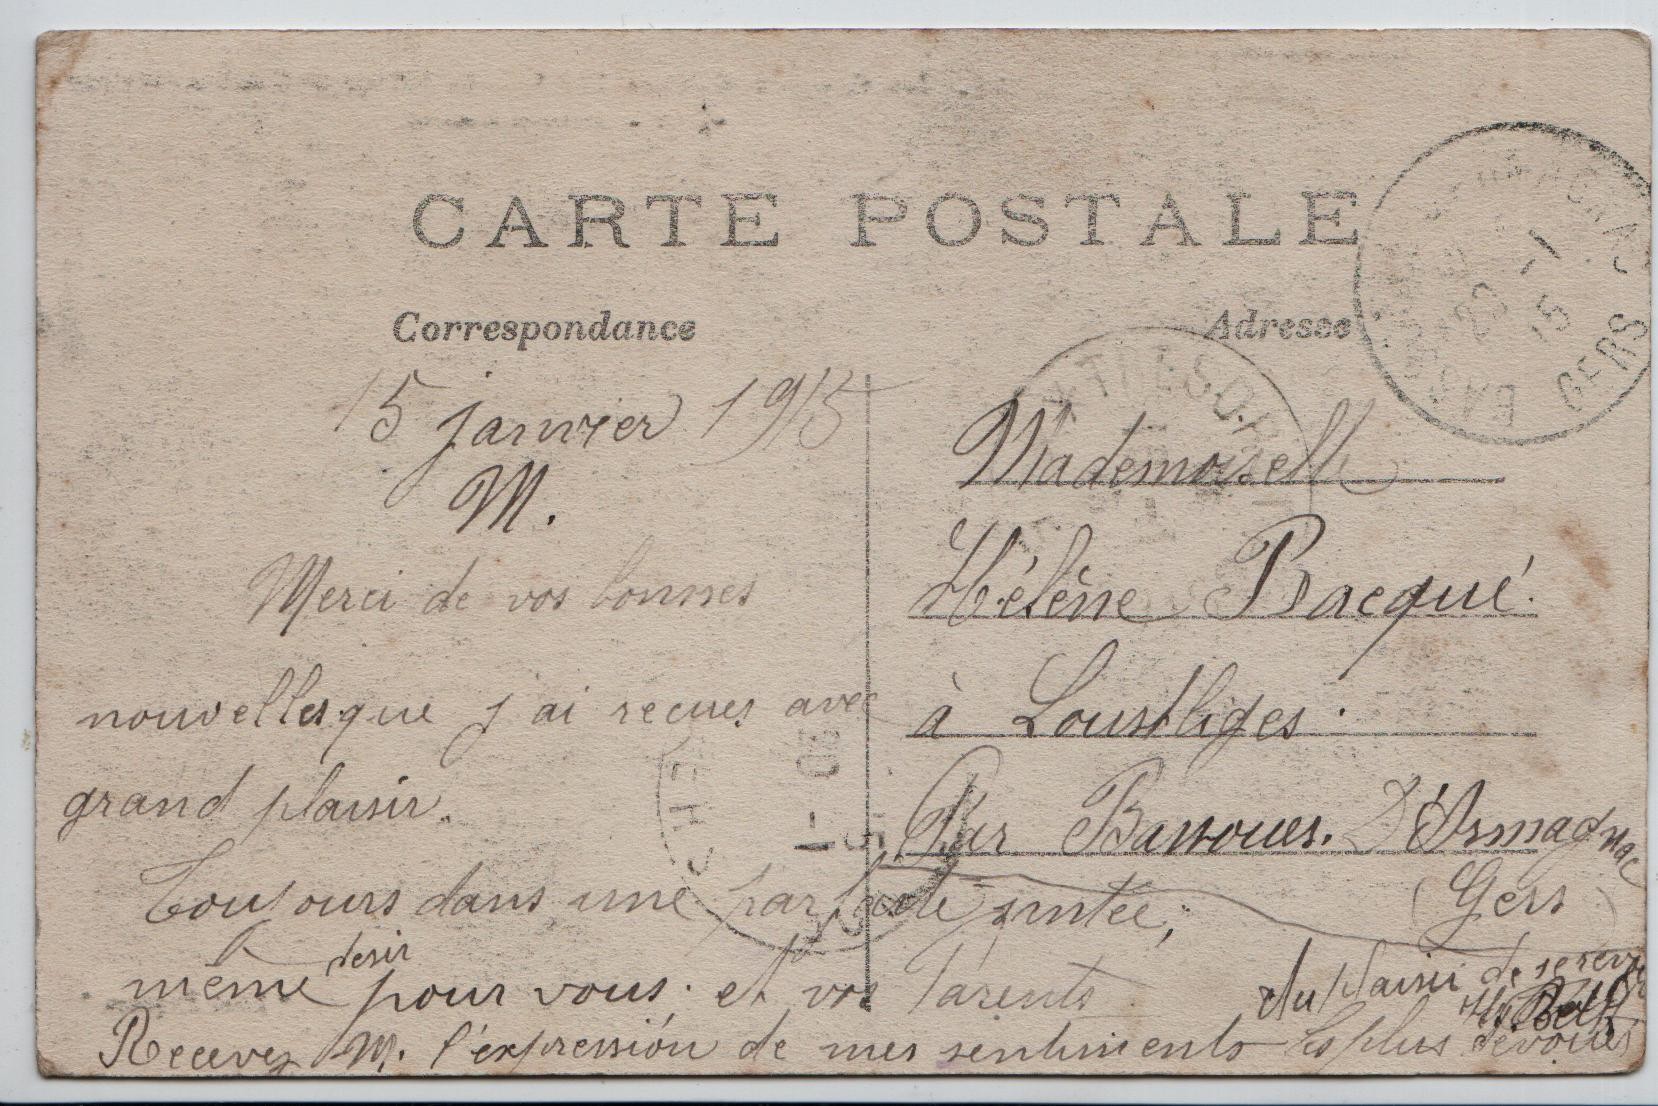 CARTE POSTALE
Correspondance
Adresse
15 janvier 1915
M.
Merci de vos bonnes
nouvelles que j'ai recues avec
grand plaisir.
Toujours dans une parfaite santée,
même desir pour vous. et vos Parents
Recevez M. l'expression de mes sentiments les plus devoués
du plaisir de
Mademoiselle
Hélène Bacqué.
à Loustliges.
Par Bassoues. D'Armagnac
(Gers)
20 -1
15
GERS